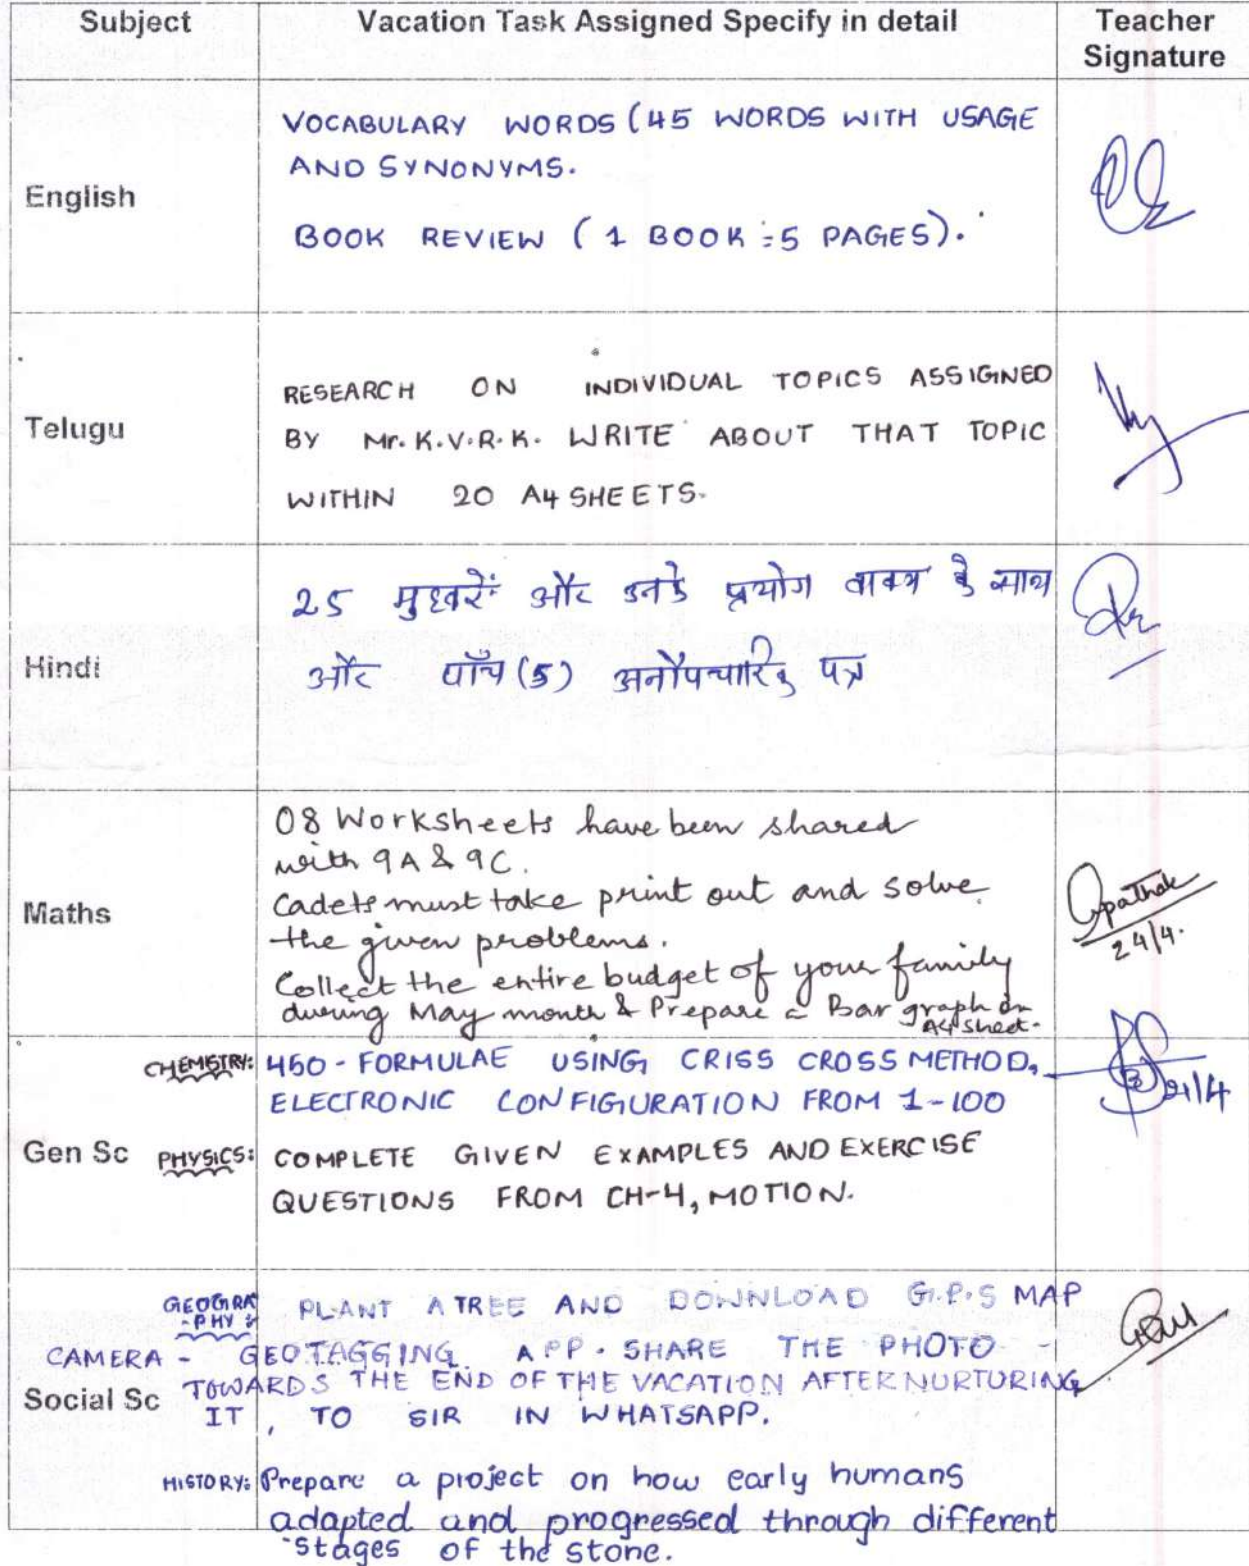 Subject Vacation Task Assigned Specify in detail Teacher
Signature
English
VOCABULARY WORDS (45 WORDS WITH USAGE
AND SYNONYMS.
BOOK REVIEW ( 1 BOOK = 5 PAGES).
Telugu
RESEARCH ON INDIVIDUAL TOPICS ASSIGNED
BY Mr. K.V.R.K. WRITE ABOUT THAT TOPIC
WITHIN 20 A4 SHEETS.
Hindi
25 मुहावरें और उनके प्रयोग वाक्य के साथ
और पाँच (5) अनौपचारिक पत्र
Maths
08 Worksheets have been shared
with 9A & 9C.
Cadets must take print out and solve
the given problems.
Collect the entire budget of your family
during May month & Prepare a Bar graph on
A4 sheet.
Pathak
24/4.
Gen Sc
CHEMISTRY: 450 - FORMULAE USING CRISS CROSS METHOD,
ELECTRONIC CONFIGURATION FROM 1-100
21/4
PHYSICS: COMPLETE GIVEN EXAMPLES AND EXERCISE
QUESTIONS FROM CH-4, MOTION.
Social Sc
GEOGRA
-PHY : PLANT A TREE AND DOWNLOAD G.P.S MAP
CAMERA - GEOTAGGING APP. SHARE THE PHOTO -
TOWARDS THE END OF THE VACATION AFTER NURTURING
IT, TO SIR IN WHATSAPP.
HISTORY: Prepare a project on how early humans
adapted and progressed through different
stages of the stone.